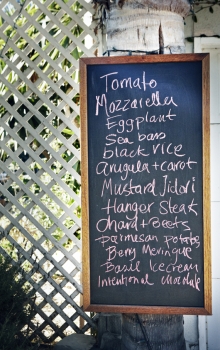 Tomato
Mozzarella
Eggplant
Sea bass
black rice
Arugula + carot
Mustard Jidori
Hanger Steak
Chard + Beets
parmesan potatoes
Berry Meringue
Basil Icecream
Intentional chocolate